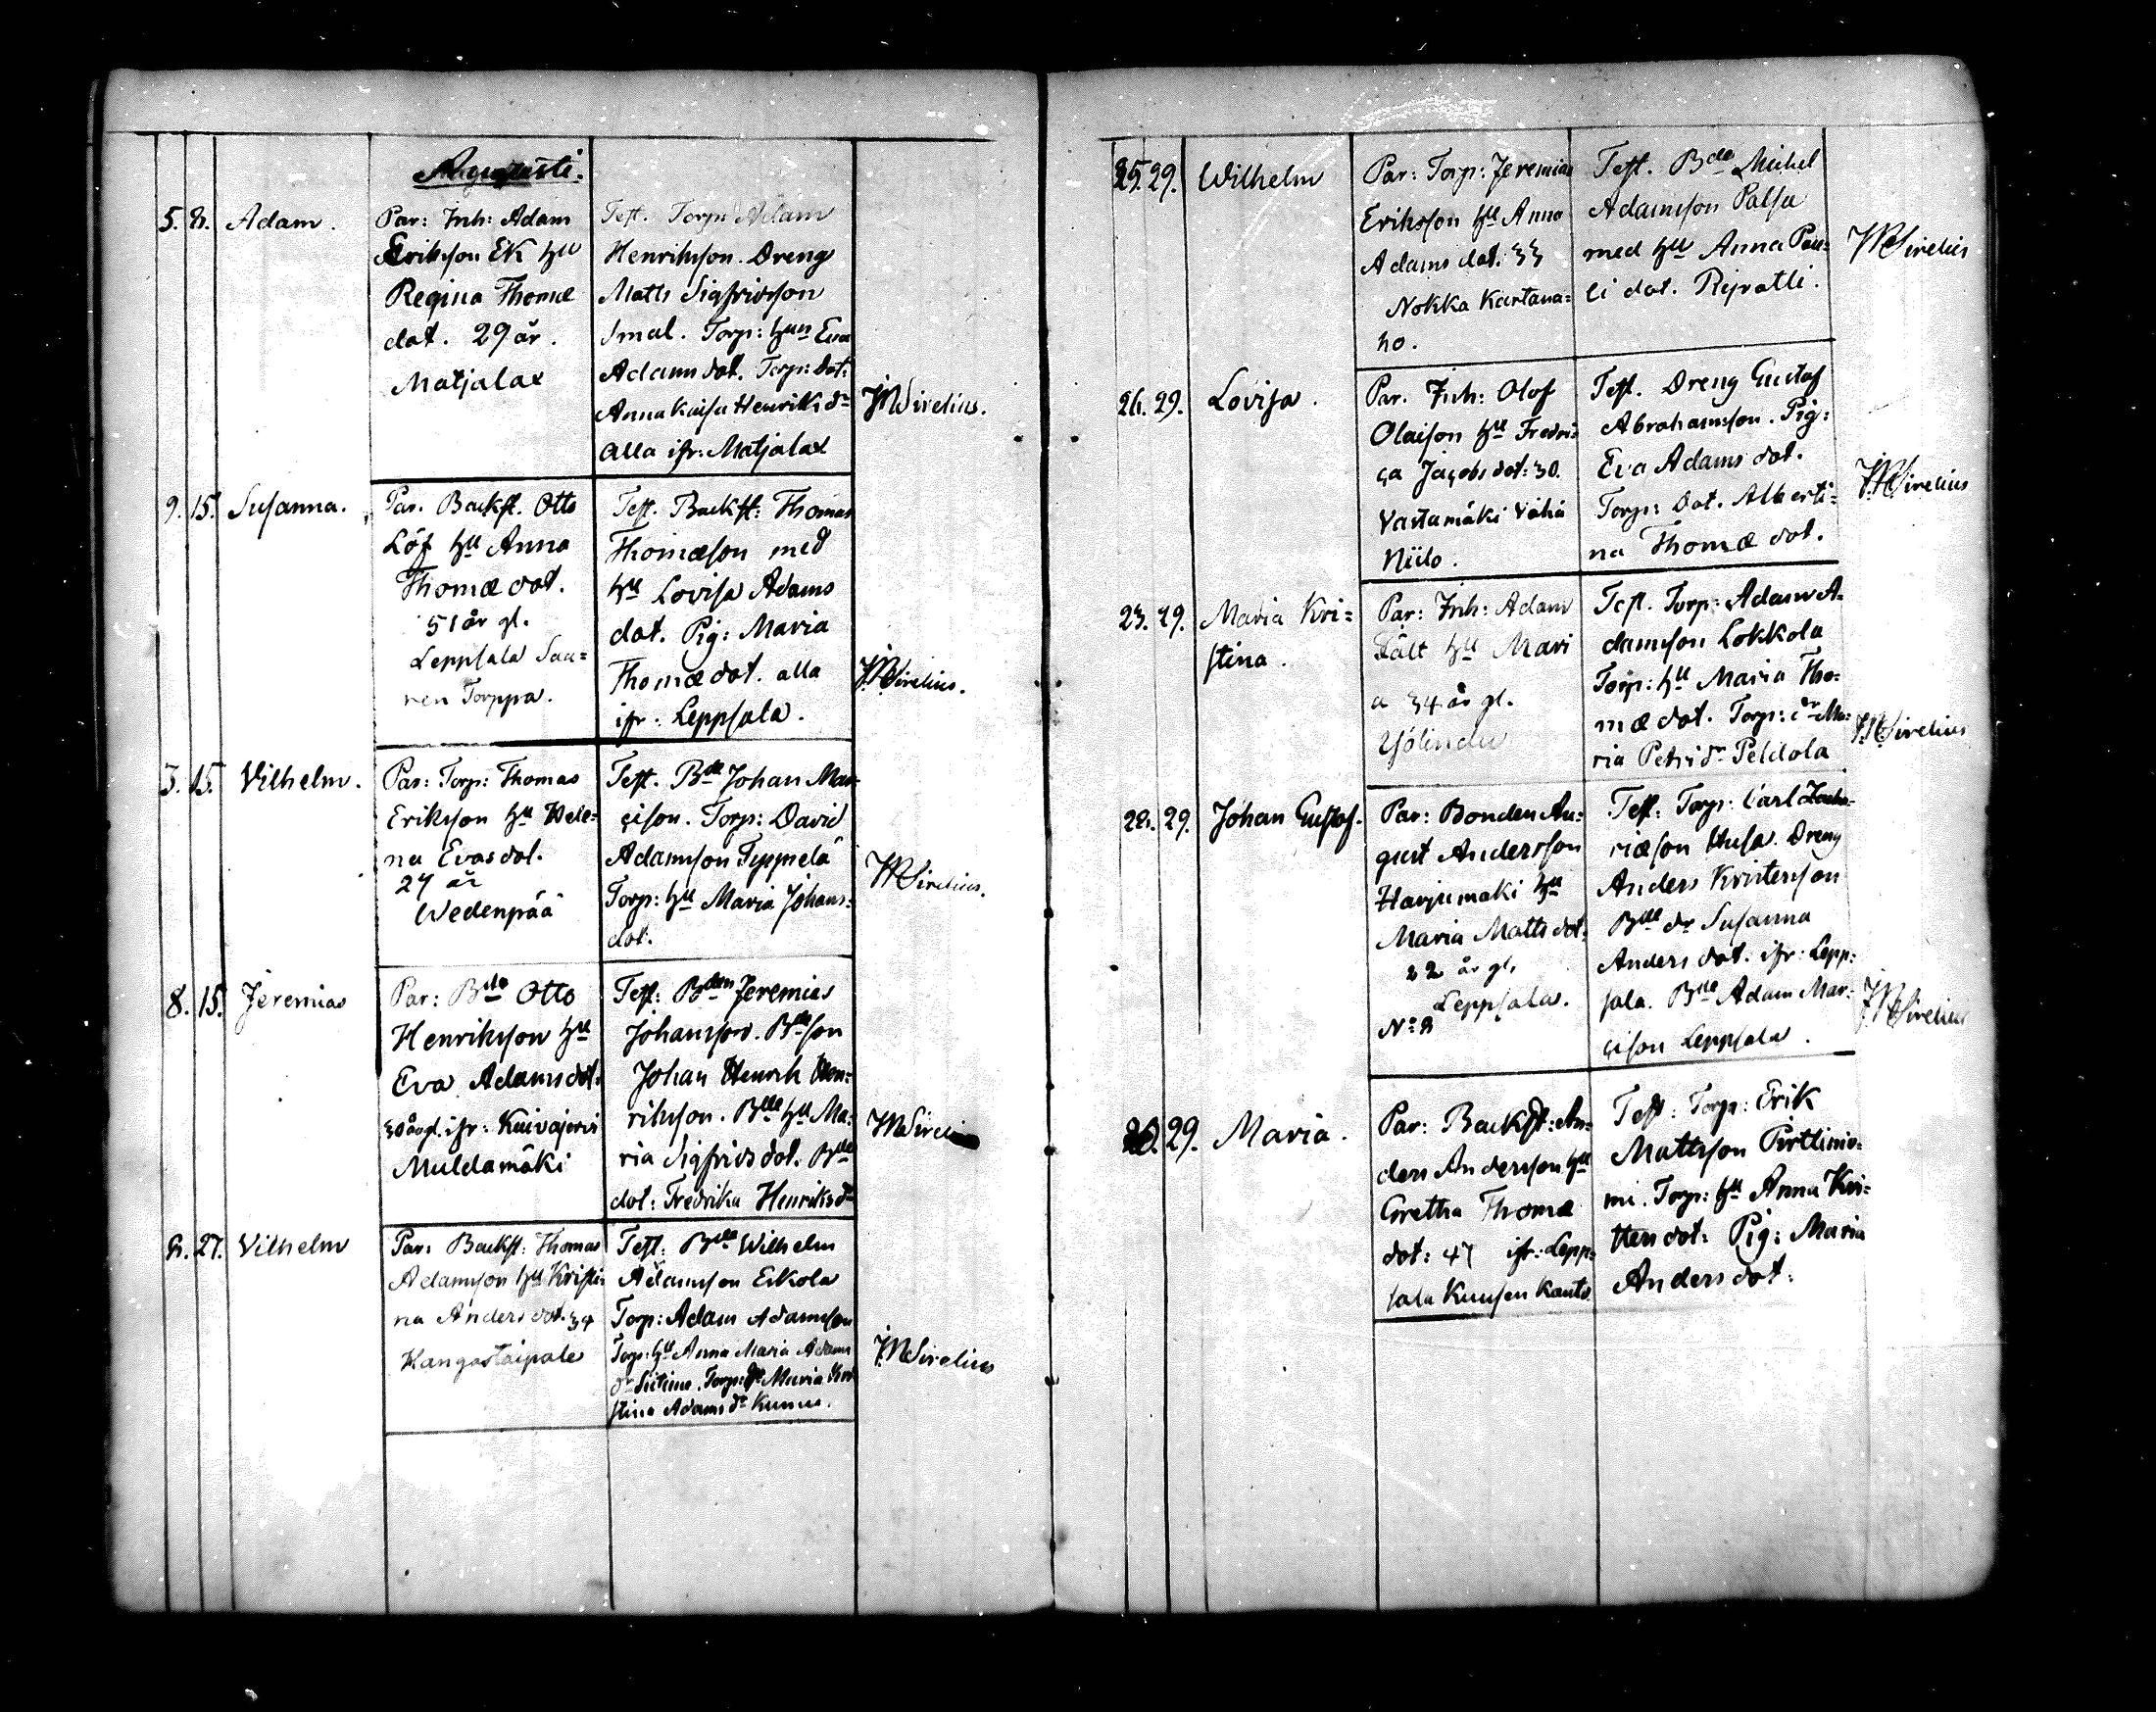 Augusti.
5. 8. Adam.
Par: Inh: Adam
Erikson Ek hu
Regina Thomæ
dot. 29 år.
Matjalax
Test. Torp: Adam
Henrikson. Dreng
Matts Sigfridson
Torp: hu Eva
Adams dot. Torp: dot:
Anna Kaisa Henriks dr
alla ifr: Matjalax
JWSirelius.
9. 15. Susanna.
Par. Backst. Otto
Löf hu Anna
Thomæ dot.
51 år gl.
Leppsala Saa=
ren Torppa.
Test. Backst: Thomas
Thomæson med
hu Lovisa Adams
dot. Pig: Maria
Thomæ dot. alla
ifr: Leppsala.
JWSirelius.
3. 15. Vilhelm.
Par: Torp: Thomas
Erikson hu Hele=
na Evasdot.
27 år
Wedenpää
Test. Bde Johan Mar
cison. Torp: David
Adamson Teppelä
Torp: hu Maria Johans=
dot.
JWSirelius.
8. 15. Jeremias
Par: Bde Otto
Henrikson hu
Eva Adamsdot:
30 år gl. ifr: Kuivajervi
Muldamäki
Test: Bden Jeremias
Johanson. Bdeson
Johan Henrik Hen=
rikson. Bde hu Ma=
ria Sigfrids dot. Bde
dot: Fredrika Henriks dr
JWSireli
8. 27. Vilhelm
Par: Backst: Thomas
Adamson hu Kristi=
na Anders dot. 34
Kangastaipale
Test: Bde Wilhelm
Adamson Eskola
Torp: Adam Adamson
Torp: hu Anna Maria Adams
dr Torp: dr Maria Kri
stina Adams dr
JWSirelius
25. 29. Wilhelm
Par: Torp: Jeremias
Erikson hu Anna
Adams dot. 33
Nokka Kartana=
ho.
Test. Bde Michel
Adamson Palsa
med hu Anna Pau=
li dot. Rijvatti.
JWSirelius
26. 29. Lovisa.
Par. Inh: Olof
Olaison hu Fredri=
ca Jacobs dot: 30.
Vastamäki Vähä
Niilo.
Test. Dreng Gustaf
Abrahamson. Pig:
Eva Adams dot.
Torp: Dot. Alberti=
na Thomæ dot.
JWSirelius
23. 29. Maria Kri=
stina.
Par: Inh: Adam
Fält hu Mari
a 34 år gl.
Test. Torp: Adam A=
damson Lokkola
Torp: hu Maria Tho=
mæ dot. Torp: dr Ma=
ria Petri dr Peldola
JWSirelius
28. 29. Johan Gustaf.
Par: Bonden Au=
gust Andersson
Harjumäki hu
Maria Matts dot:
22 år gl.
Leppsala.
No 8
Test: Torp: Carl Zacha=
riæson Husa. Dreng
Anders Kristerson
Bde dr Susanna
Anders dot: ifr: Lepp=
sala. Bde Adam Mar=
cison Leppsala.
JWSirelius
29. Maria.
Par: Backst: An=
ders Anderson hu
Gretha Thomæ
dot: 47 ifr: Lepp=
sala Kuusen Kanto.
Test: Torp: Erik
Mattsson Perttinie=
mi. Torp: hu Anna Kri=
sters dot: Pig: Maria
Anders dot: